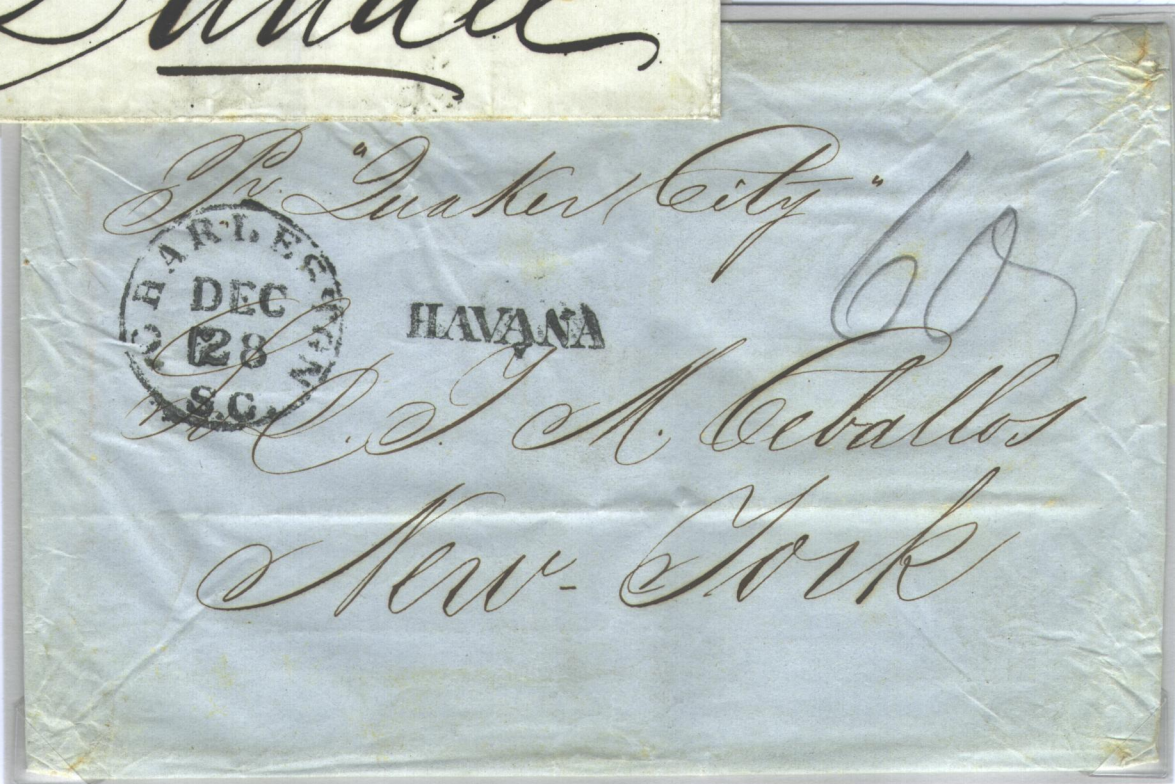 Pr. "Quaker City"
60
CHARLESTON
DEC
28
S.C.
HAVANA
M. Ceballos
New-York